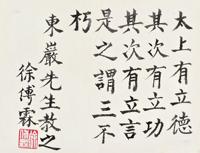 太上有立德
其次有立功
其次有立言
是之謂三不
朽
東巖先生教之
徐傅霖